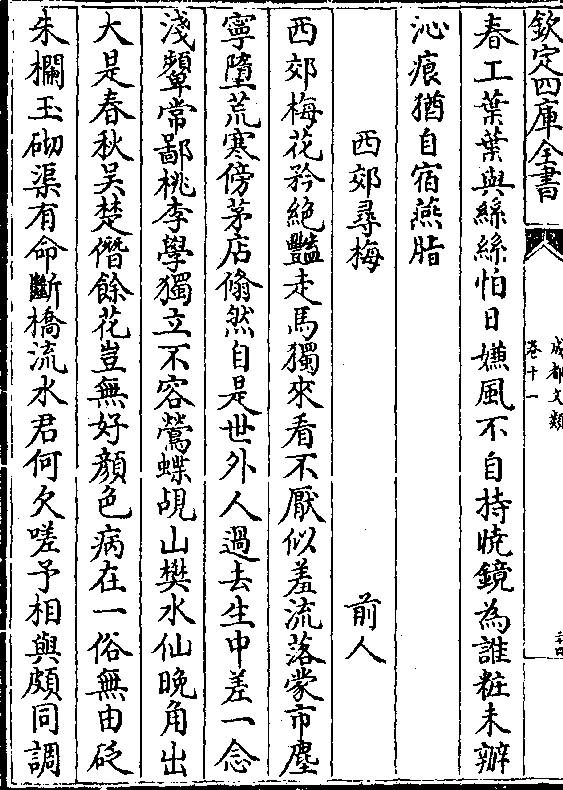 欽定四庫全書
成都文類
卷十一
春工葉葉與絲絲怕日嫌風不自持曉鏡為誰粧未辦
沁痕猶自宿燕脂
西郊尋梅　前人
西郊梅花矜絶豔走馬獨來看不厭似羞流落蒙市塵
寧墮荒寒傍茅店翛然自是世外人過去生中差一念
淺顰常鄙桃李學獨立不容鶯蝶覘山樊水仙晚角出
大是春秋吳楚僭餘花豈無好顔色病在一俗無由砭
朱欄玉砌渠有命斷橋流水君何欠嗟予相與頗同調